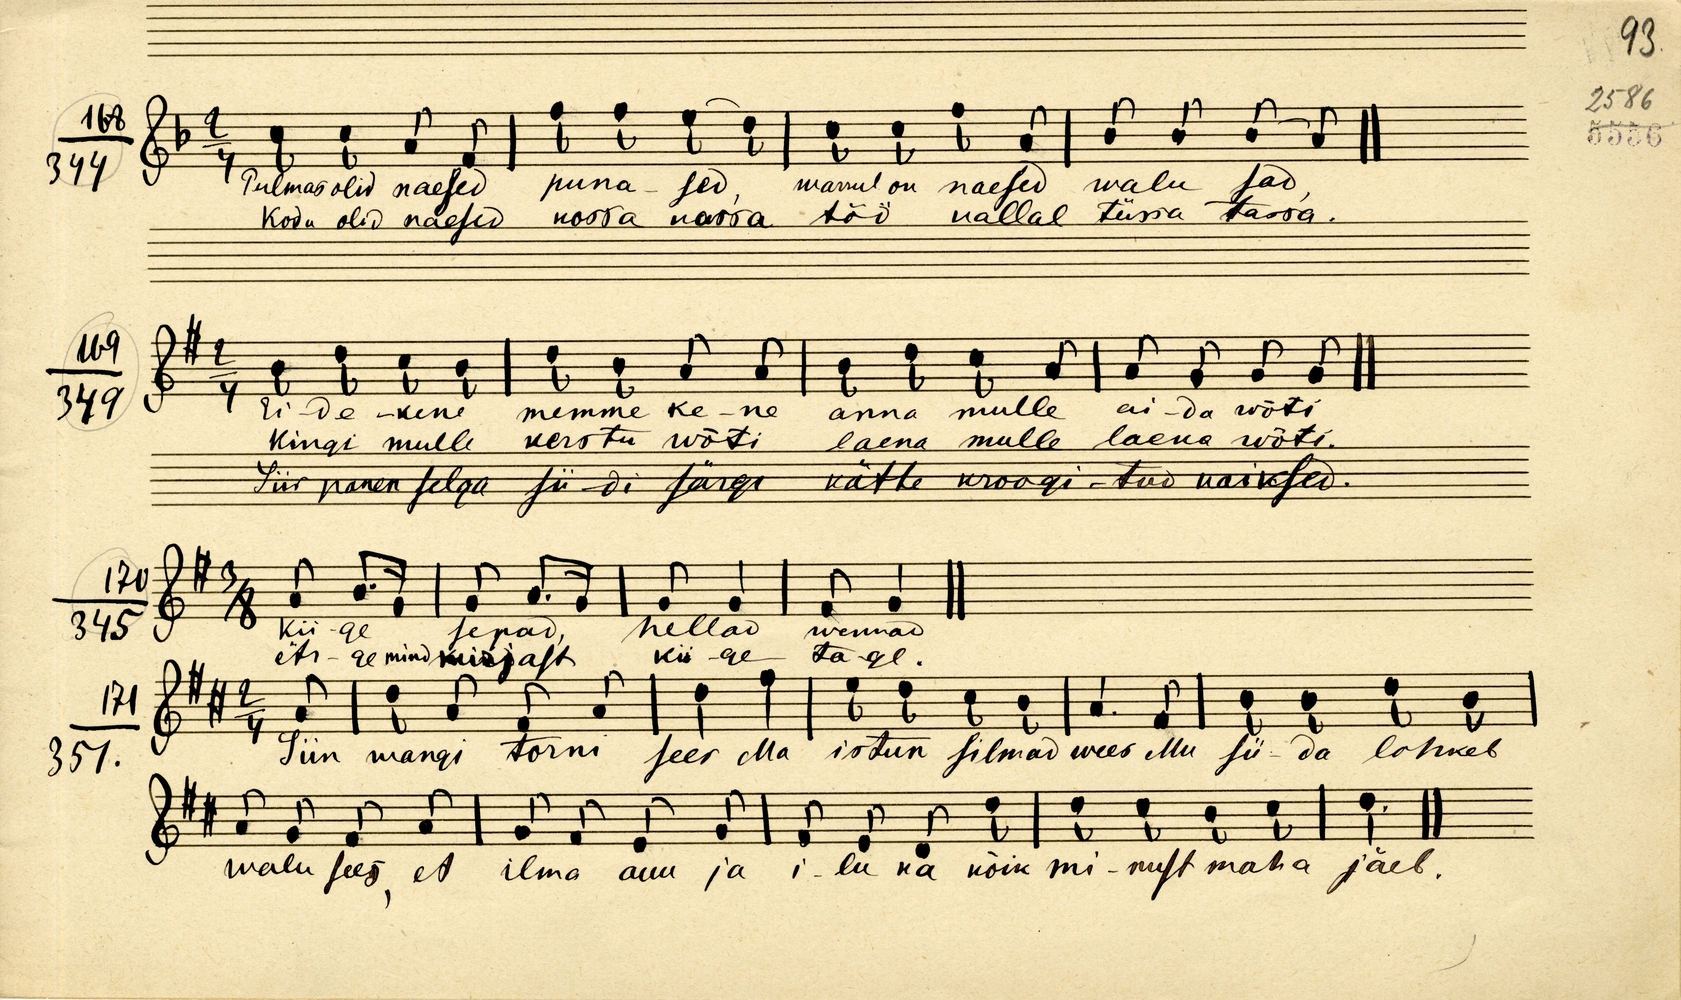 93.
2586
5556
168
344
2/4
Pulmas olid naesed puna-sed, warrul on naesed walu sad,
Kodu olid naesed kossa kassa töö kallal tüssa tassa.
169
349
2/4
Ei-de-kene memme ke-ne anna mulle ai-da wõti
Kingi mulle kerstu wõti laena mulle laeka wõti.
Siis panen selga sii-di särgi kätte kroogi-tud kaiksed.
170
345
3/8
Kii-ge sepad, hellad wennad
ärge mind kiigast kii-ge ta-ge.
171
351.
2/4
Siin wangi torni sees Ma istun silmad wees Mu sü-da lõhkeb
walu sees, et ilma auu ja i-lu ka kõik mi-nust maha jäeb.